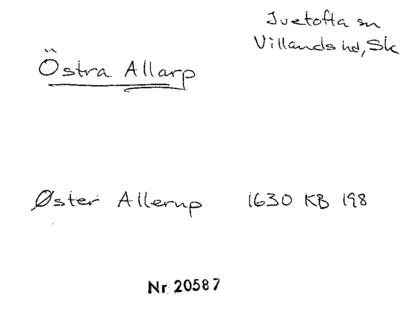 Ivetofta sn
Villands hd, Sk
Östra Allarp
Øster Allerup 1630 KB 198
Nr 20587